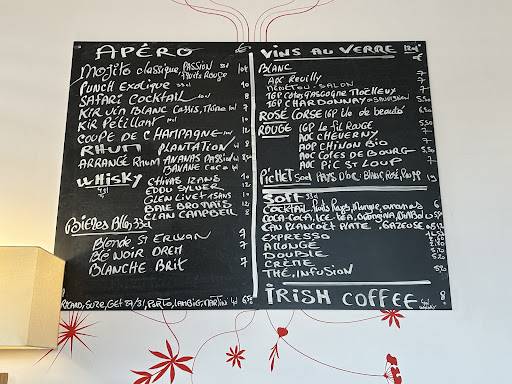 APÉRO €
Mojito classique, PASSION 33cl 10€
FRUITS ROUGE
PUNCH Exotique 8
SAFARI COCKTAIL 10
KIR VIN BLANC CASSIS, Mûre
KIR PÉTILLANT 10
COUPE DE CHAMPAGNE 12
RHUM PLANTATION 8
ARRANGÉ RHUM ANANAS PASSION
BANANE COCO
WHISKY CHIVAS 12 ANS 10
4cl EDDU SYLVER 12
GLENLIVET 12
BAIE BROMAIS
CLAN CAMPBELL 8
Bières Btlle 33cl
Blonde St ERWAN 7
Blé NOIR DREM 7
BLANCHE BRIT 7
RICARD, SUZE, GET 27/31, PORTO, LAMBIG, MARTINI
VINS AU VERRE 12cl
BLANC
AOC Reuilly 7
MENETOU-SALON 7
IGP Côtes GASCOGNE MOËLLEUX 7
IGP CHARDONNAY-SAUVIGNON 5,50
ROSÉ CORSE IGP île de beauté 6,50
ROUGE IGP le fil Rouge
AOC CHEVERNY 7
AOP CHINON Bio 7
AOC Côtes DE BOURG 7
AOC PIC ST LOUP 7
PICHET 50cl PAYS D'OC: Blanc, ROSÉ, Rouge 13
SOFT 33cl
COCKTAIL Fruits Rouges, Mangue, ananas 6
COCA-COLA, ICE-TEA, ORANGINA
EAU PLANCOËT PLATE, GAZEUSE
EXPRESSO
ALLONGÉ
DOUBLE
CRÈME
THÉ, INFUSION
IRISH COFFEE 8